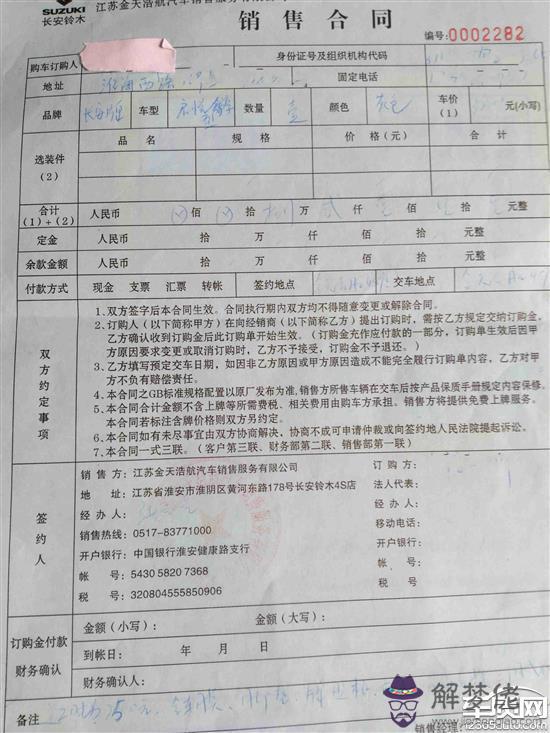 SUZUKI 江苏金天浩航汽车销售服务有限公司
长安铃木
销售合同
编号:0002282
购车订购人 身份证号及组织机构代码
地址 固定电话
品牌 车型 数量 壹 颜色 灰色 车价(1) 元(小写)
选装件(2) 品名 规格 价格(元) 合计
合计(1)+(2) 人民币 佰 拾 万 仟 佰 拾 元整
定金 人民币 拾 万 仟 佰 拾 元整
余款金额 人民币 拾 万 仟 佰 拾 元整
付款方式 现金 支票 汇票 转帐 签约地点 交车地点
双方约定事项
1.双方签字后本合同生效。合同执行期内双方均不得随意变更或解除合同。
2.订购人(以下简称甲方)在向经销商(以下简称乙方)提出订购时,需按乙方规定交纳订购金,
乙方确认收到订购金后此订购单开始生效。(订购金充作应付款的一部分,订购单生效后因甲
方原因要求变更或取消订购时,乙方不予接受,订购金不予退还。)
3.乙方填写预定交车日期,如因非乙方原因或甲方原因造成不能完全履行订购单内容,乙方对甲
方不负有赔偿责任。
4.本合同之GB标准规格配置以原厂发布为准,销售方所售车辆在交车后按产品保质手册规定内容保修。
5.本合同合计金额不含上牌等所需费税、相关费用由购车方承担、销售方提供免费上牌服务。
本合同若标注含牌价格则双方另约定。
6.本合同如有未尽事宜由双方协商解决,协商不成可申请仲裁或向签约地人民法院提起诉讼。
7.本合同一式三联。(客户第三联、财务部第二联、销售部第一联)
签约人
销售方:江苏金天浩航汽车销售服务有限公司 订购方:
地址:江苏省淮安市淮阴区黄河东路178号长安铃木4S店 法人代表:
经办人: 经办人:
销售热线:0517-83771000 移动电话:
开户银行:中国银行淮安健康路支行 开户银行:
帐号:5430 5820 7368 帐号:
税号:320804555850906 税号:
订购金付款财务确认 金额(小写): 金额(大写):
到帐日: 年 月 日
财务确认人:
备注
销售经理:
解梦佬
车质网
12365auto.com